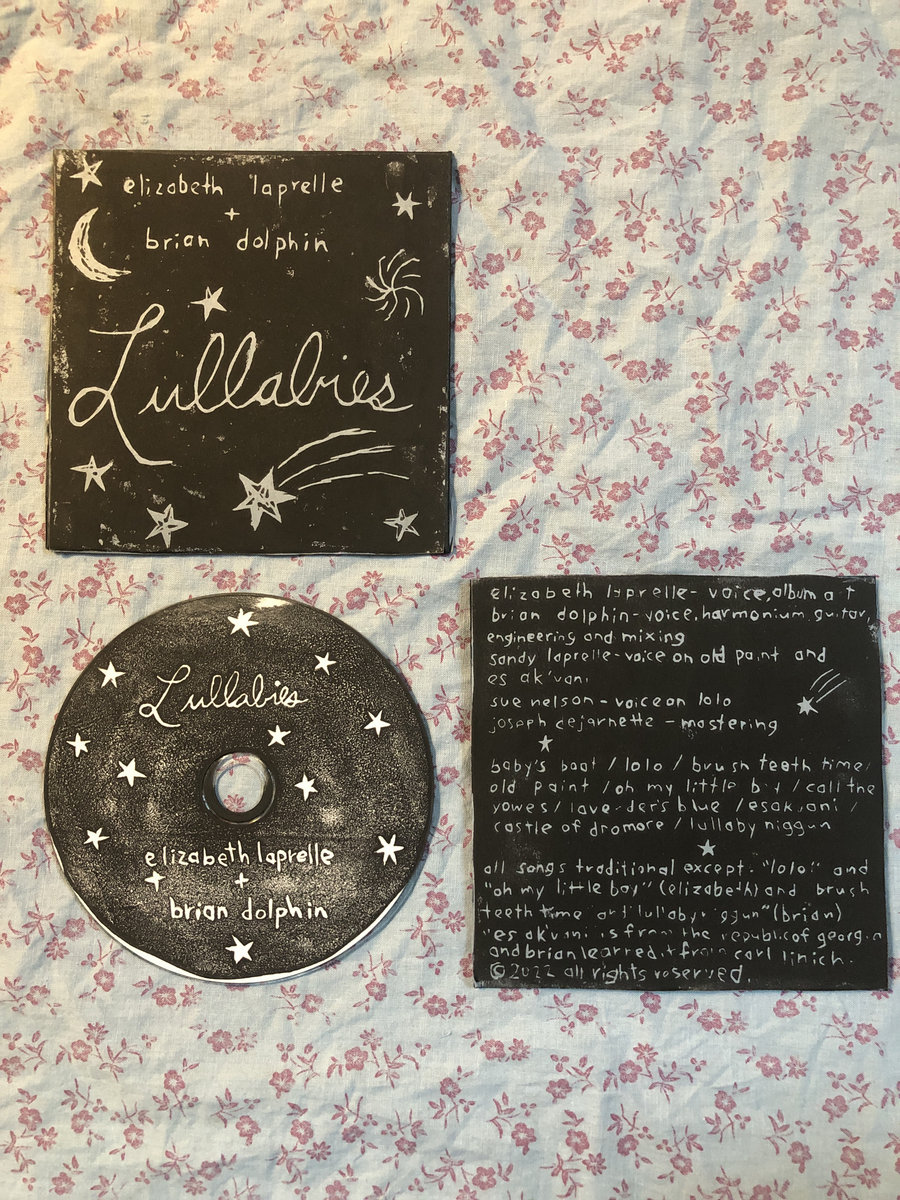 elizabeth laprelle
+
brian dolphin
Lullabies
Lullabies
elizabeth laprelle
+
brian dolphin
elizabeth laprelle - voice, album a t
brian dolphin - voice, harmonium guitar,
engineering and mixing
sandy laprelle - voice on old paint and
es ak'vani
sue nelson - voice on lolo
joseph dejarnette - mastering
baby's boat / lolo / brush teeth time /
old paint / oh my little boy / call the
yowes / lavender's blue / es ak'vani /
castle of dromore / lullaby niggun
all songs traditional except "lolo" and
"oh my little boy" (elizabeth) and brush
teeth time and "lullaby niggun" (brian)
"es ak'vani is from the republic of georgia
and brian learned it from carl linich.
©2022 all rights reserved.